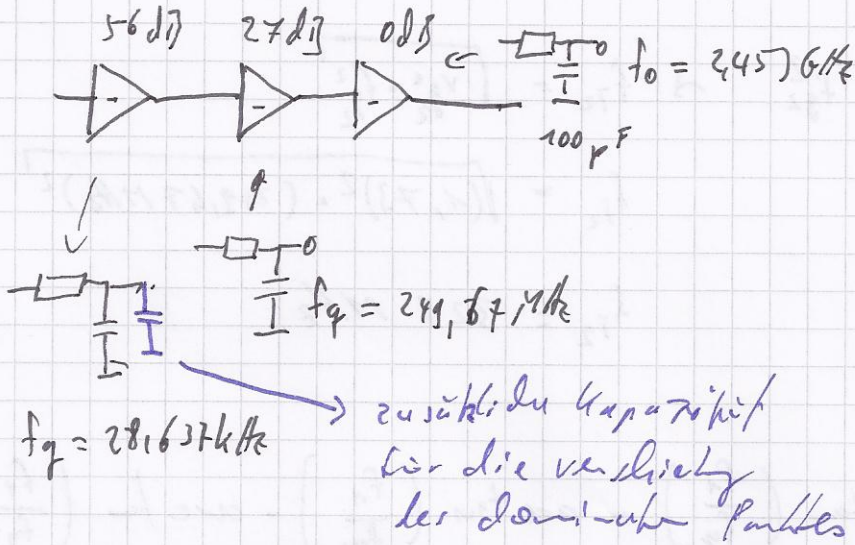 56dB 27dB 0dB
f₀ = 2,457 GHz
100pF
fq = 249,67 MHz
fq = 28,637kHz
zusätzliche Kapazität
für die verschiebung
des dominanten Punktes